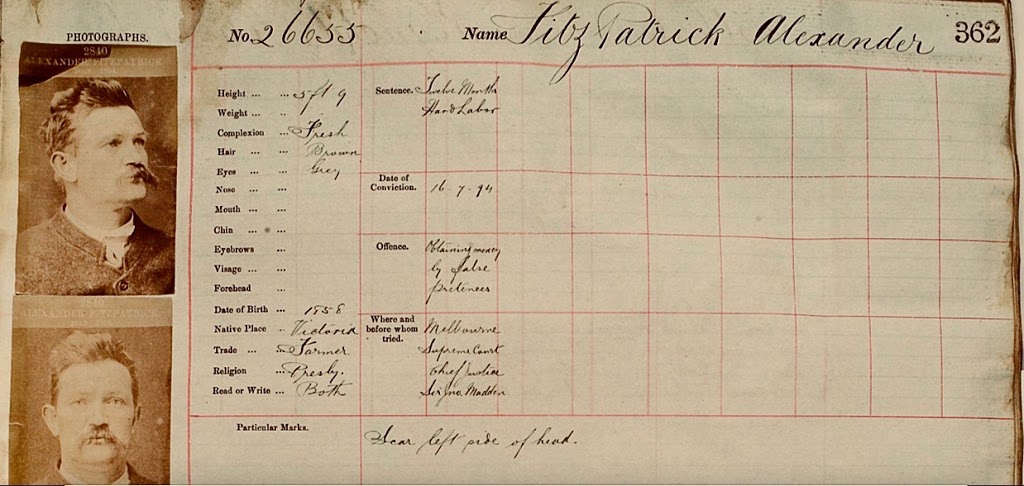 PHOTOGRAPHS.
No. 26655 Name FitzPatrick Alexander 362
2840
ALEXANDER FITZPATRICK
ALEXANDER FITZPATRICK
Height ... ... 5 ft 9
Weight ... ..
Complexion ... Fresh
Hair ... ... Brown
Eyes ... ... Grey
Nose ... ...
Mouth ... ...
Chin ... ...
Eyebrows ...
Visage ... ...
Forehead ...
Date of Birth ... 1858
Native Place .. Victoria
Trade ... ... Farmer
Religion ... Presby.
Read or Write ... Both
Sentence. Twelve Months
Hard Labor
Date of
Conviction. 16-7-94
Offence. Obtaining money
by false
pretences
Where and
before whom
tried.
Melbourne
Supreme Court
Chief Justice
Sir Jno. Madden
Particular Marks.
Scar left side of head.